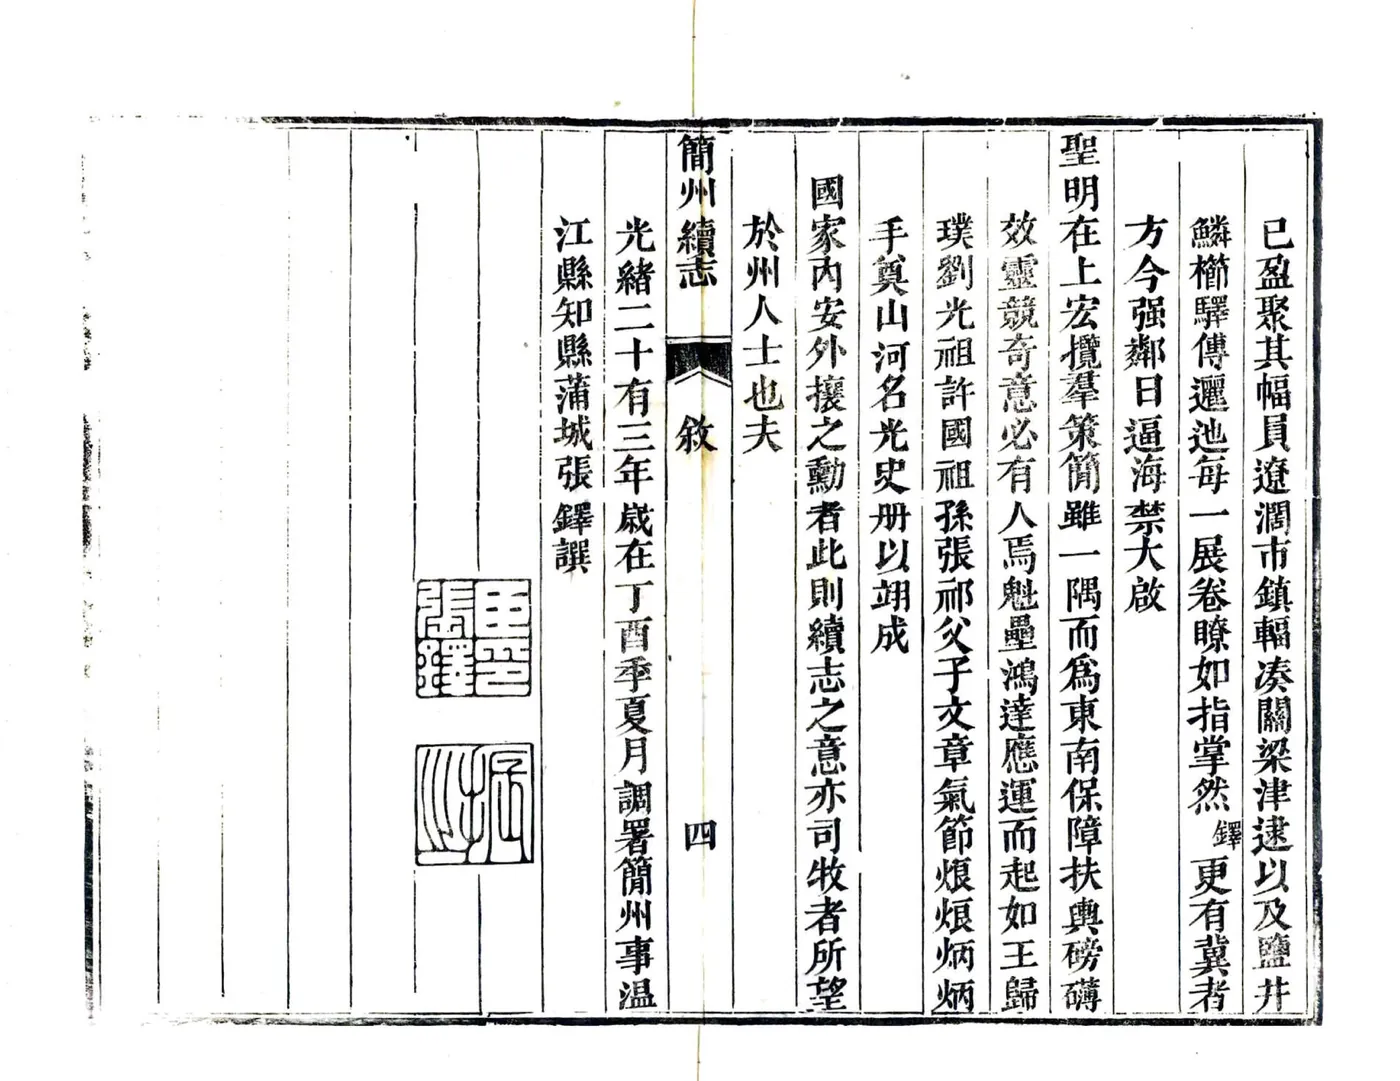 已盈聚其幅員遼濶市鎮輻湊關梁津逮以及鹽井
鱗櫛驛傳邐迆每一展卷瞭如指掌然鐸更有冀者
方今强鄰日逼海禁大啟
聖明在上宏攬羣策簡雖一隅而爲東南保障扶輿磅礴
效靈競奇意必有人焉魁壘鴻達應運而起如王歸
璞劉光祖許國祖孫張祁父子文章氣節烺烺炳炳
手奠山河名光史册以翊成
國家內安外攘之勳者此則續志之意亦司牧者所望
於州人士也夫
簡州續志
敘
四
光緒二十有三年歲在丁酉季夏月調署簡州事溫
江縣知縣蒲城張鐸譔
張鐸